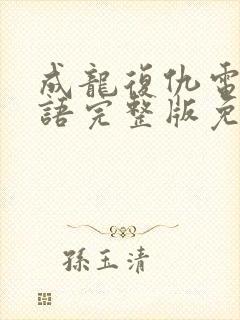 成龍復仇電
語完整版免
孫玉清